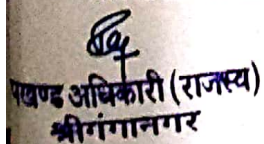 पखण्ड अधिकारी (राजस्व)
श्रीगंगानगर